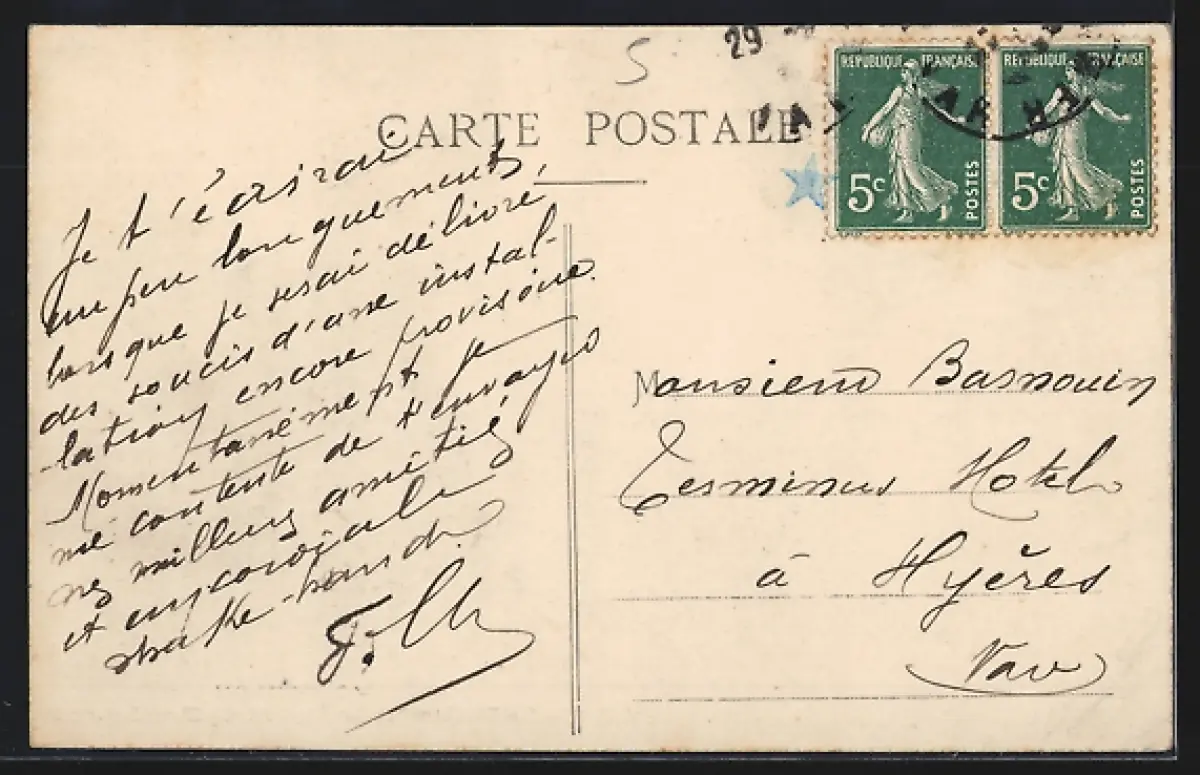 5
29
CARTE POSTALE
REPUBLIQUE FRANÇAISE
5c
POSTES
REPUBLIQUE FRANÇAISE
5c
POSTES
Je t'écrirai
un peu longuement,
lorsque je serai délivré
des soucis d'une instal-
-lation encore provisoire.
Momentanément je
me contente de t'envoyer
mes meilleures amitiés
et my cordiale
shake-hand.
Monsieur Barnouin
Terminus Hotel
à Hyères
Var